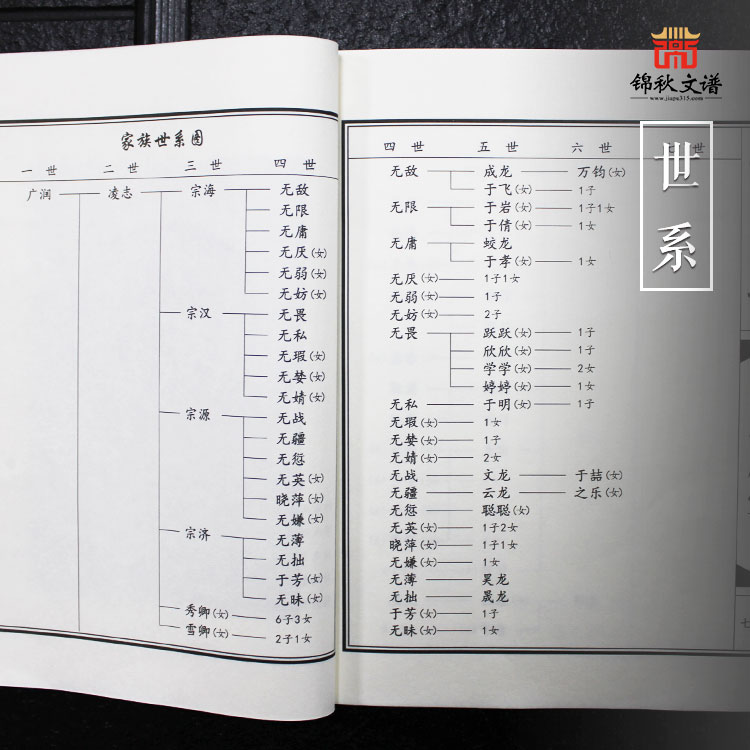 锦秋文谱
www.jiapu315.com
世系
家族世系图
一世 二世 三世 四世
广润 凌志 宗海 无敌
无限
无庸
无厌(女)
无弱(女)
无妨(女)
宗汉 无畏
无私
无瑕(女)
无婪(女)
无婧(女)
宗源 无战
无疆
无愆
无英(女)
晓萍(女)
无嫌(女)
宗济 无薄
无拙
于芳(女)
无昧(女)
秀卿(女) 6子3女
雪卿(女) 2子1女
四世 五世 六世 世
无敌 成龙 万钧(女)
于飞(女) 1子
无限 于岩(女) 1子1女
于倩(女) 1女
无庸 蛟龙
于孝(女) 1女
无厌(女) 1子1女
无弱(女) 1子
无妨(女) 2子
无畏 跃跃(女) 1子
欣欣(女) 1子
学学(女) 2女
婷婷(女) 1女
无私 于明(女) 1子
无瑕(女) 1女
无婪(女) 1子
无婧(女) 2女
无战 文龙 于喆(女)
无疆 云龙 之乐(女)
无愆 聪聪(女)
无英(女) 1子2女
晓萍(女) 1子1女
无嫌(女) 1女
无薄 昊龙
无拙 晟龙
于芳(女) 1子
无昧(女) 1女
七